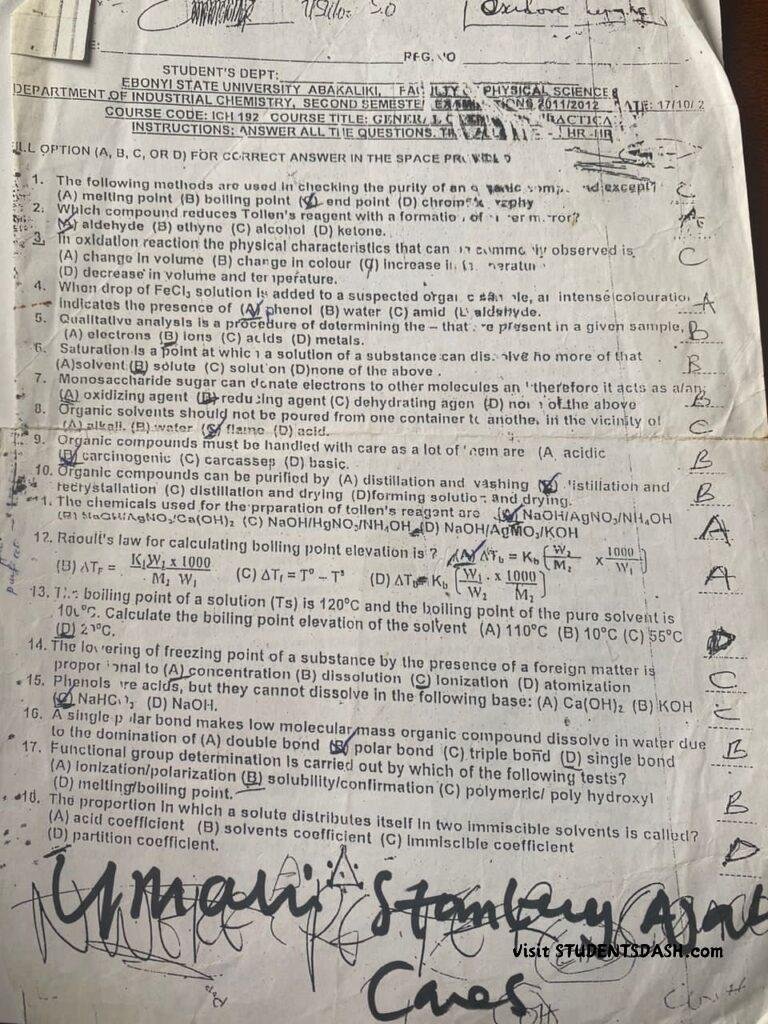 REG. NO
STUDENT'S DEPT:
EBONYI STATE UNIVERSITY ABAKALIKI, PHYSICAL SCIENCE
DEPARTMENT OF INDUSTRIAL CHEMISTRY, SECOND SEMESTE 2011/2012 17/10/
COURSE CODE: ICH 192 COURSE TITLE: GENERAL
INSTRUCTIONS: ANSWER ALL THE QUESTIONS.
OPTION (A, B, C, OR D) FOR CORRECT ANSWER IN THE SPACE
1. The following methods are used in checking the purity of an except? C
(A) melting point (B) boiling point (C) end point (D)
2. Which compound reduces Tollen's reagent with a formation of mirror? A
(A) aldehyde (B) ethyne (C) alcohol (D) ketone.
3. In oxidation reaction the physical characteristics that can observed is C
(A) change in volume (B) change in colour (C) increase in
(D) decrease in volume and temperature.
4. When drop of FeCl₃ solution is added to a suspected an intense colouration A
indicates the presence of (A) phenol (B) water (C) amid (D) aldehyde.
5. Qualitative analysis is a procedure of determining the – that are present in a given sample, B
(A) electrons (B) ions (C) acids (D) metals.
6. Saturation is a point at which a solution of a substance can dissolve no more of that B
(A)solvent (B) solute (C) solution (D)none of the above .
7. Monosaccharide sugar can donate electrons to other molecules and therefore it acts as a/an B
(A) oxidizing agent (B) reducing agent (C) dehydrating agen (D) none of the above
8. Organic solvents should not be poured from one container to another in the vicinity of C
(A) alkali (B) water (C) flame (D) acid.
9. Organic compounds must be handled with care as a lot of them are (A) acidic B
(B) carcinogenic (C) carcasses (D) basic.
10. Organic compounds can be purified by (A) distillation and washing (B) distillation and B
recrystallation (C) distillation and drying (D)forming solution and drying.
1. The chemicals used for the prparation of tollen's reagent are (A) NaOH/AgNO₃/NH₄OH A
(B) NaOH/AgNO₃/Ca(OH)₂ (C) NaOH/HgNO₃/NH₄OH (D) NaOH/AgMO₃/KOH
12. Raoult's law for calculating boiling point elevation is ? (A) ΔT_b = K_b [W₂/M₂ x 1000/W₁] A
(B) ΔT_F = K_f W₂ x 1000 / M₂ W₁ (C) ΔT_f = T° – T^s (D) ΔT_b = K_b [W₁/W₂ x 1000/M₂]
13. The boiling point of a solution (Ts) is 120°C and the boiling point of the pure solvent is
100°C. Calculate the boiling point elevation of the solvent (A) 110°C (B) 10°C (C) 55°C
(D) 20°C. D
14. The lowering of freezing point of a substance by the presence of a foreign matter is
proportional to (A) concentration (B) dissolution (C) Ionization (D) atomization C
15. Phenols are acids, but they cannot dissolve in the following base: (A) Ca(OH)₂ (B) KOH
(C) NaHCO₃ (D) NaOH. C
16. A single polar bond makes low molecular mass organic compound dissolve in water due
to the domination of (A) double bond (B) polar bond (C) triple bond (D) single bond B
17. Functional group determination is carried out by which of the following tests?
(A) Ionization/polarization (B) solubility/confirmation (C) polymeric/ poly hydroxyl
(D) melting/boiling point. B
18. The proportion in which a solute distributes itself in two immiscible solvents is called?
(A) acid coefficient (B) solvents coefficient (C) Immiscible coefficient
(D) partition coefficient. D
Visit STUDENTSDASH.com
Cares